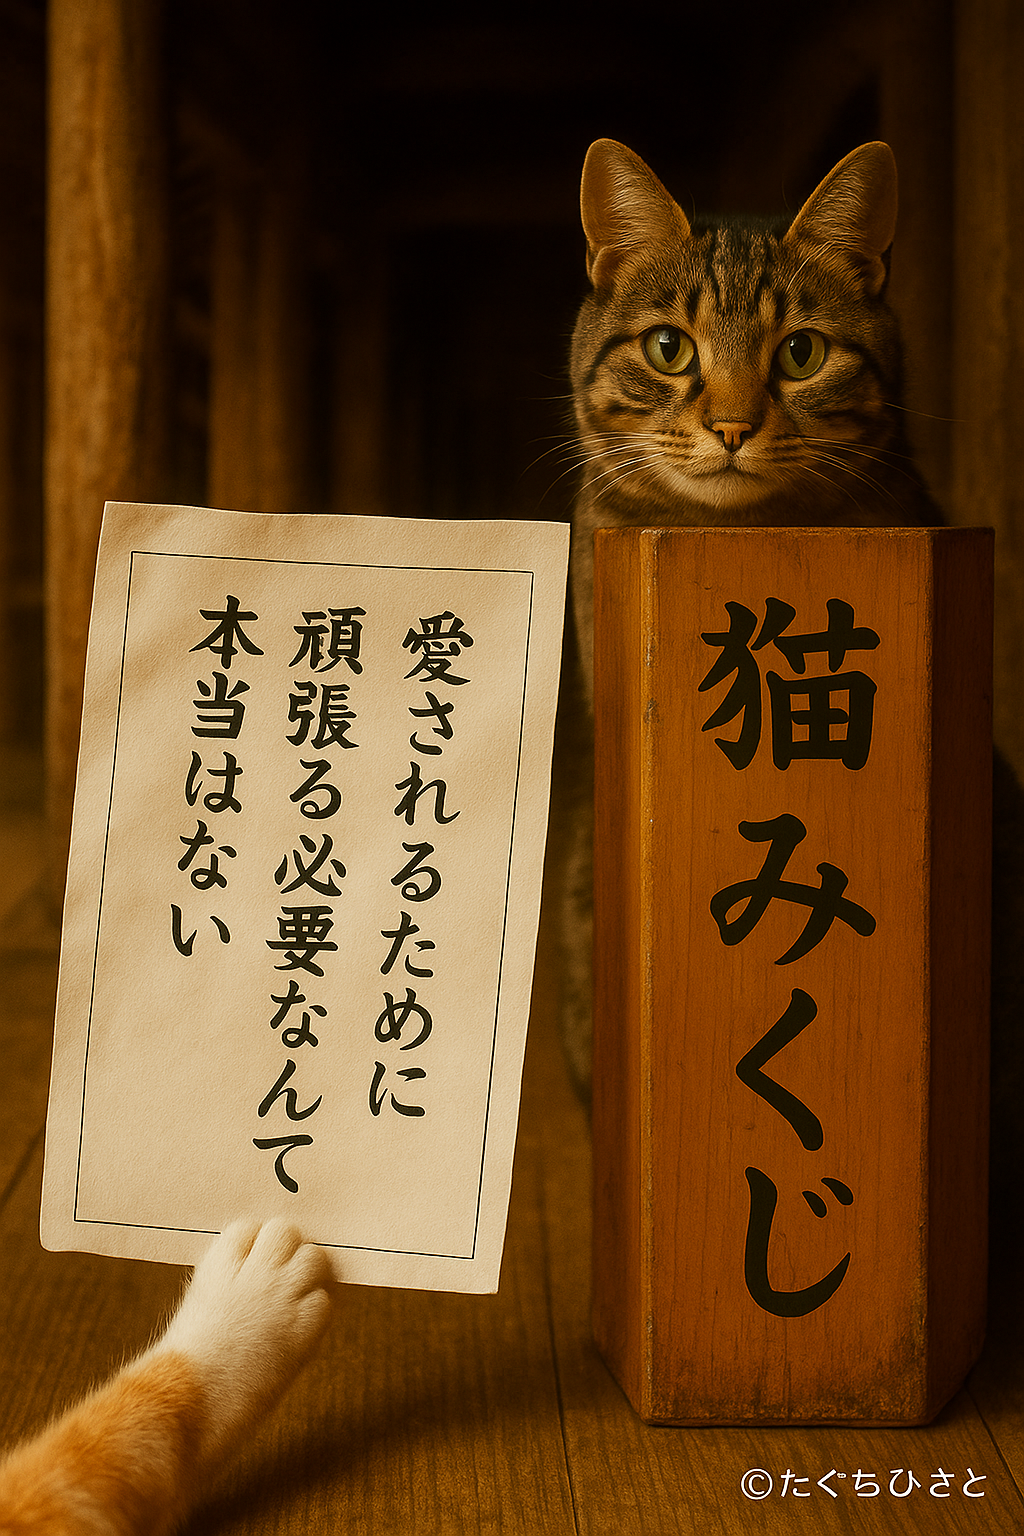 愛されるために
頑張る必要なんて
本当はない
猫みくじ
©たぐちひさと